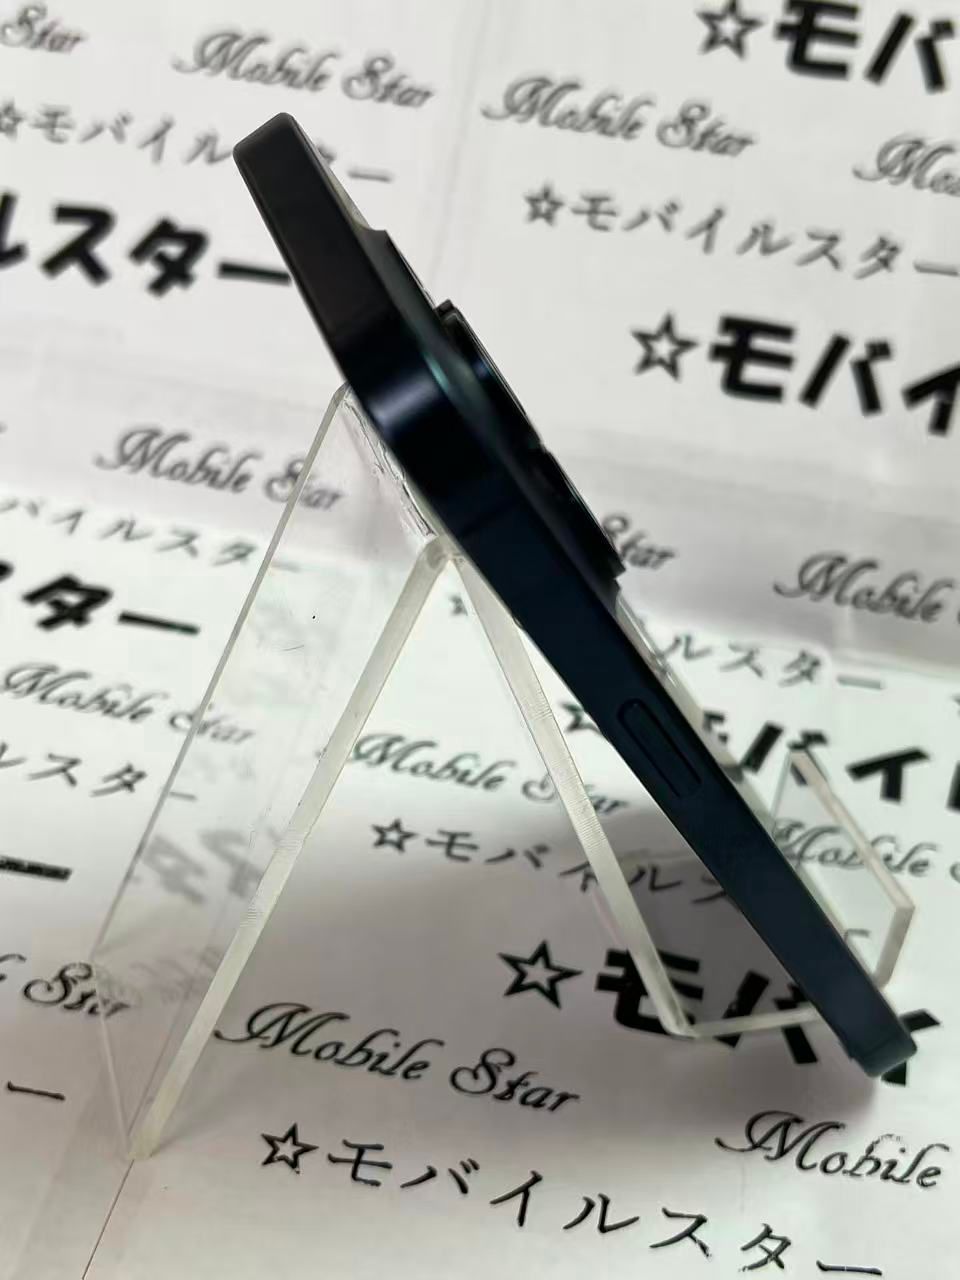 Star
Mobile Star
☆モバイ
Mobile Star
☆モバイル
ー
☆モバイルスター
ルスター
☆モバイ
Mobile Star
Star
Mobile
バイルスター
ルスター
スター
Mobile Star
モバイ
ルスター
Mobile Star
Mobile
☆モバイルス
☆モバイ
Star
Mobile Star
Mobile
☆モバイルスター